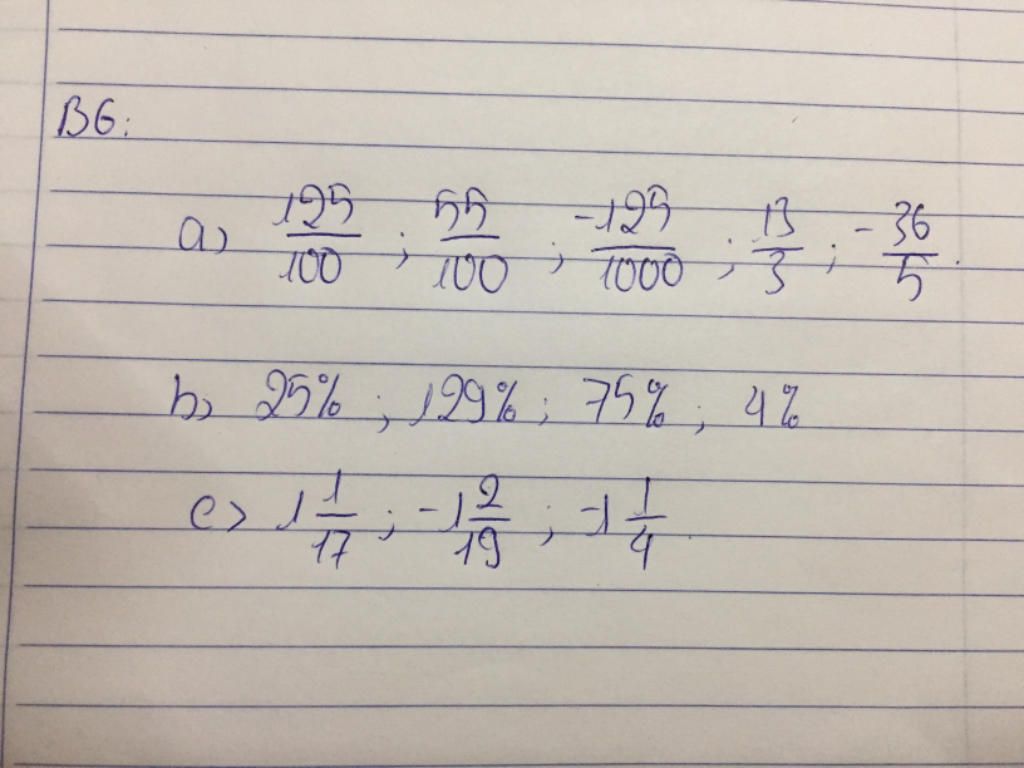 B6:
a) 125/100 ; 55/100 ; -125/1000 ; 13/3 ; -36/5 .
b) 25% ; 129% ; 75% ; 4%
c) 1 1/17 ; -1 2/19 ; -1 1/4 .